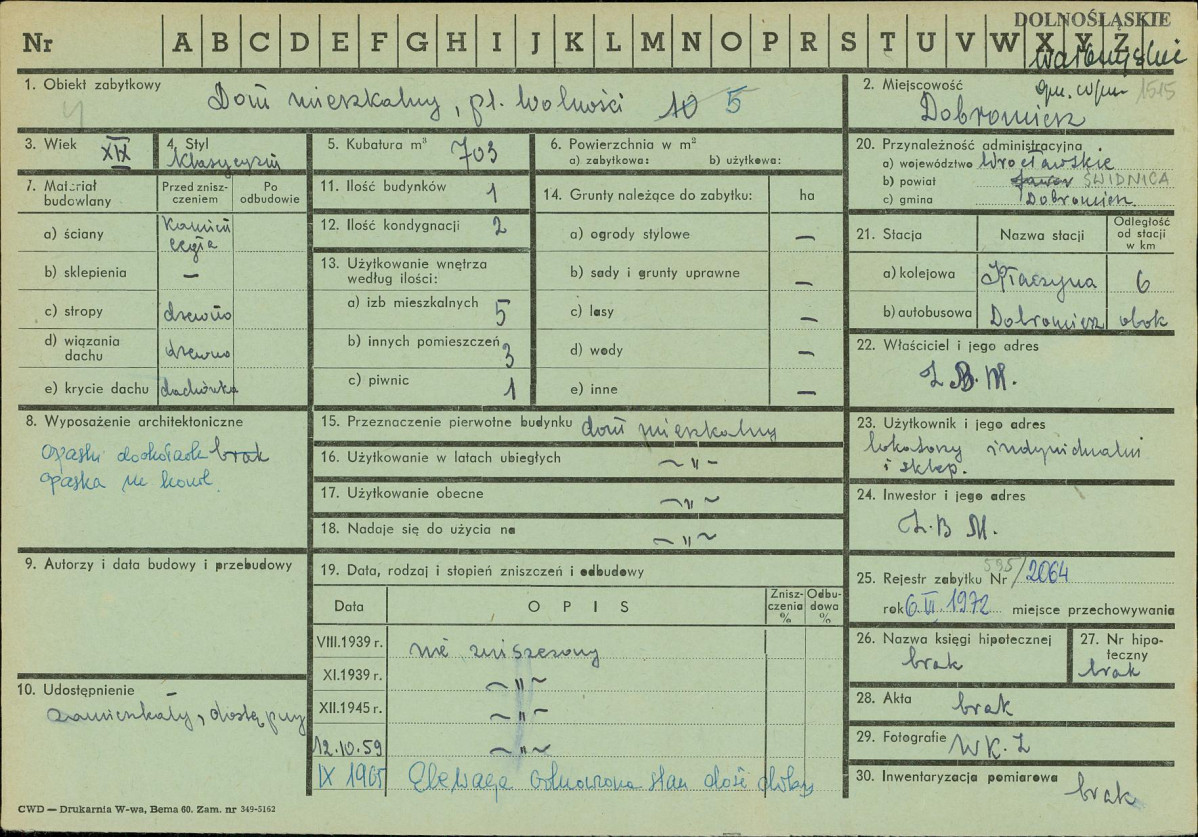 DOLNOŚLĄSKIE
Nr A B C D E F G H I J K L M N O P R S T U V W X Y Z
wałbrzyskie
1. Obiekt zabytkowy
Dom mieszkalny, pl. Wolności 10 5
2. Miejscowość
1515
Dobromierz
3. Wiek XIX
4. Styl
klasycyzm
5. Kubatura m³ 703
6. Powierzchnia w m²
a) zabytkowa: b) użytkowa:
20. Przynależność administracyjna
a) województwo Wrocławskie
b) powiat Jawor ŚWIDNICA
c) gmina Dobromierz
7. Materiał budowlany
Przed zniszczeniem
Po odbudowie
a) ściany kamień cegła
b) sklepienia —
c) stropy drewno
d) wiązania dachu drewno
e) krycie dachu dachówka
11. Ilość budynków 1
12. Ilość kondygnacji 2
13. Użytkowanie wnętrza według ilości:
a) izb mieszkalnych 5
b) innych pomieszczeń 3
c) piwnic 1
14. Grunty należące do zabytku: ha
a) ogrody stylowe —
b) sady i grunty uprawne —
c) lasy —
d) wody —
e) inne —
21. Stacja
Nazwa stacji
Odległość od stacji w km
a) kolejowa Kłaczyna 6
b) autobusowa Dobromierz obok
22. Właściciel i jego adres
Z.B.M.
8. Wyposażenie architektoniczne
opaski dookoła brak
opaska
15. Przeznaczenie pierwotne budynku dom mieszkalny
16. Użytkowanie w latach ubiegłych ~ " ~
17. Użytkowanie obecne ~ " ~
18. Nadaje się do użycia na ~ " ~
23. Użytkownik i jego adres
lokatorzy indywidualni
i sklep.
24. Inwestor i jego adres
Z.B.M.
9. Autorzy i data budowy i przebudowy
19. Data, rodzaj i stopień zniszczeń i odbudowy
Data
O P I S
Zniszczenia %
Odbudowa %
VIII.1939 r. nie zniszczony
XI.1939 r. ~ " ~
XII.1945 r. ~ " ~
12.10.59 ~ " ~
IX 1965 Elewacja odnowiona stan dość dobry
25. Rejestr zabytku Nr 595/2064
rok 6.VI.1972 miejsce przechowywania
26. Nazwa księgi hipotecznej
brak
27. Nr hipoteczny
brak
10. Udostępnienie
zamieszkały, dostępny
28. Akta brak
29. Fotografie W.K.Z
30. Inwentaryzacja pomiarowa
brak
CWD — Drukarnia W-wa, Bema 60. Zam. nr 349-5162